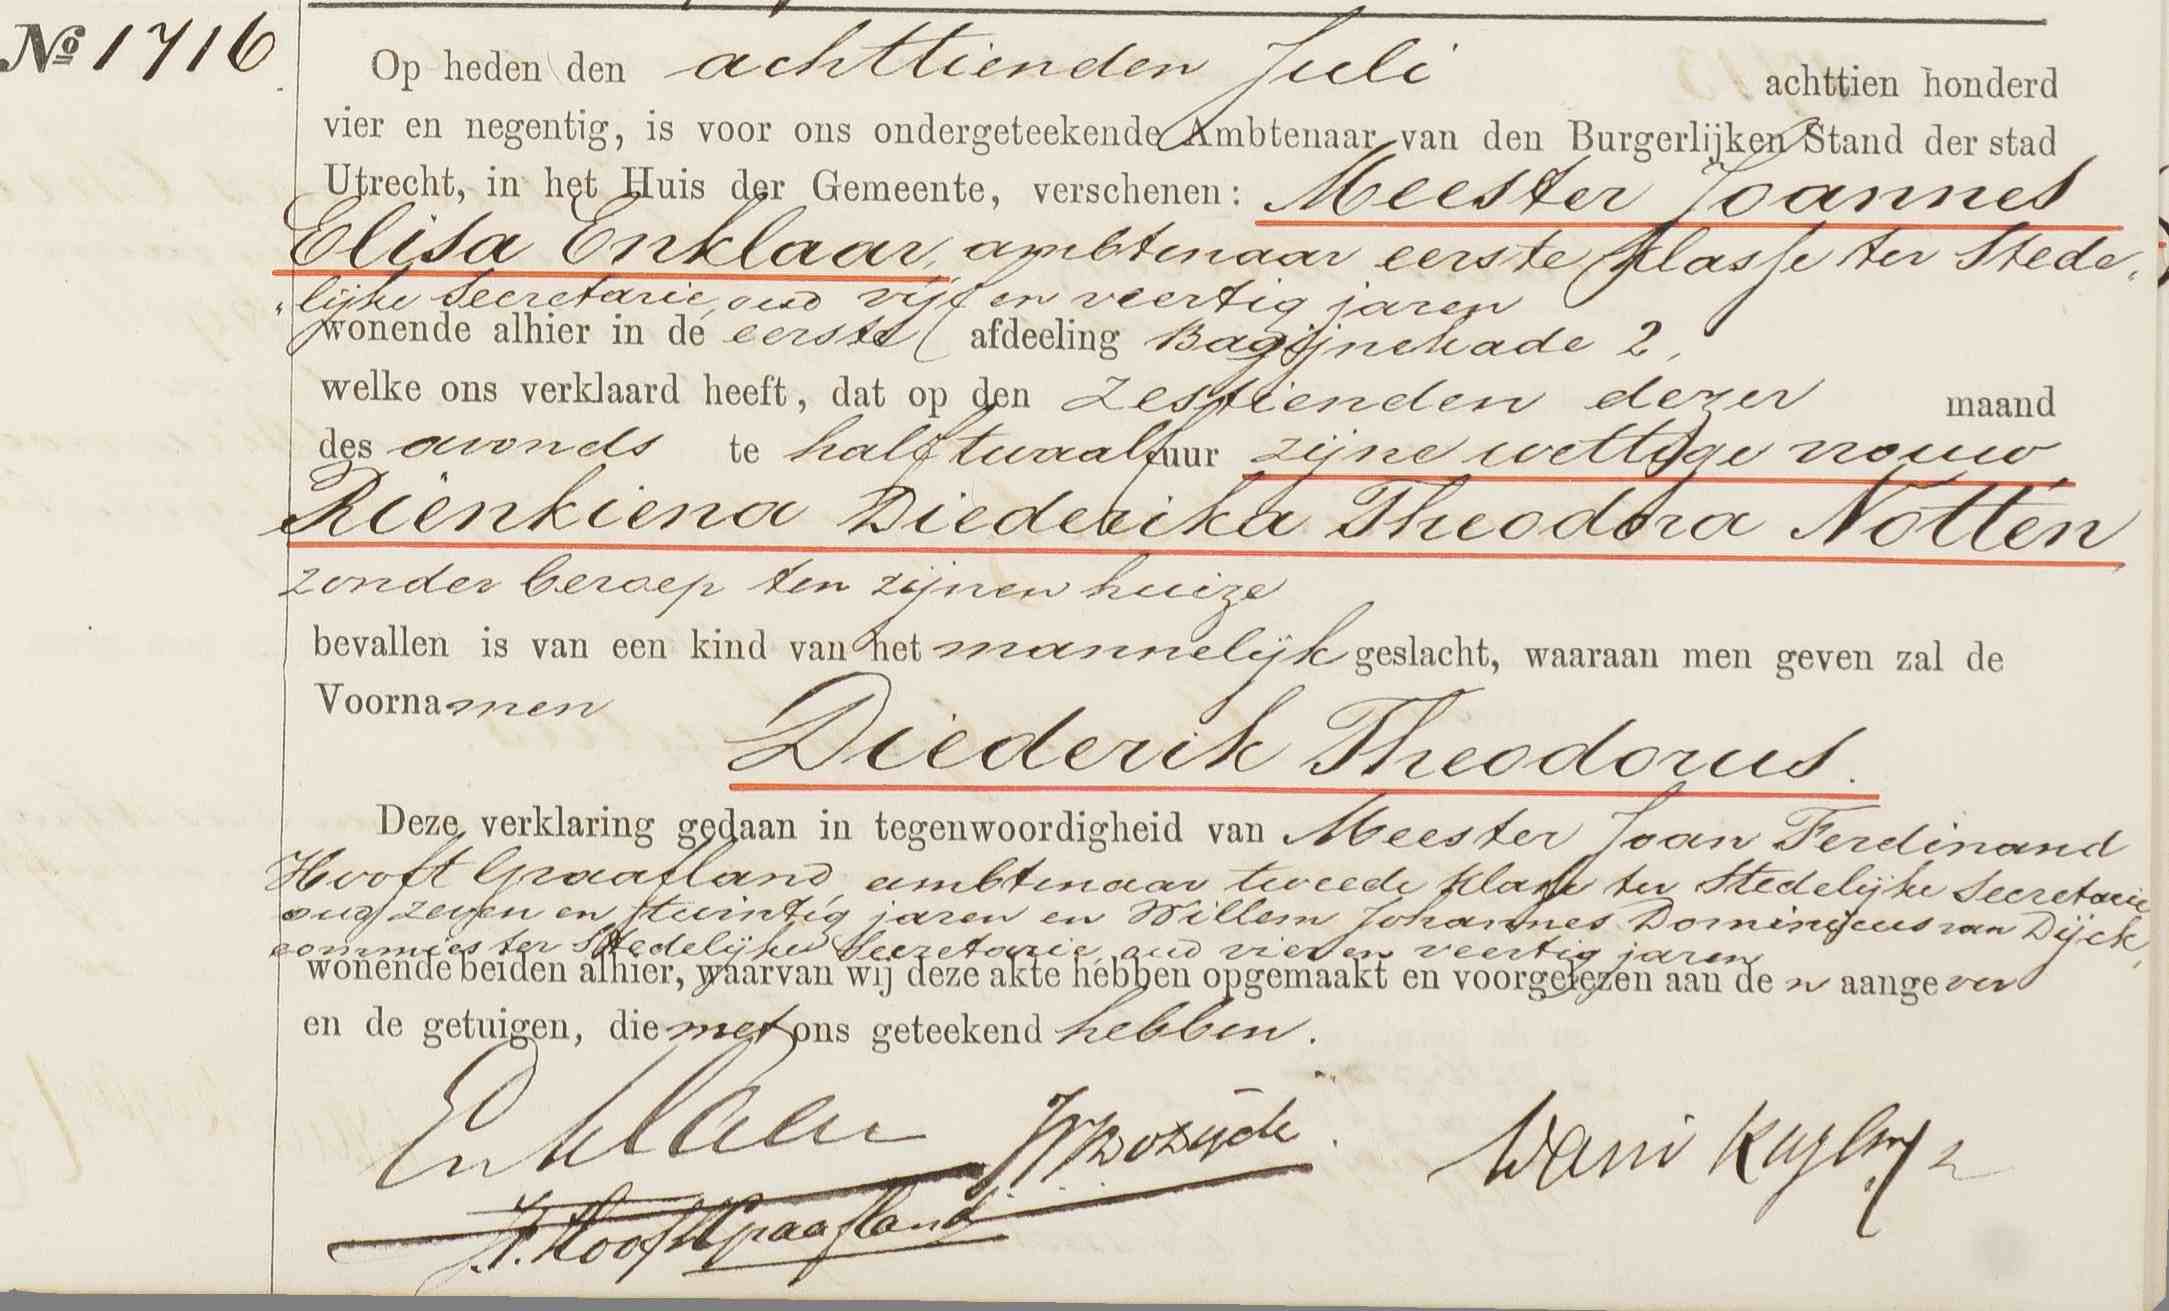 No 1716
Op heden den achttienden Juli achttien honderd
vier en negentig, is voor ons ondergeteekende Ambtenaar van den Burgerlijken Stand der stad
Utrecht, in het Huis der Gemeente, verschenen: Meester Joannes
Elisa Enklaar, ambtenaar eerste klasse ter Stede„
„lijke Secretarie, oud vijf en veertig jaren
wonende alhier in de eerste afdeeling Bagijnekade 2,
welke ons verklaard heeft, dat op den zestienden dezer maand
des avonds te half twaalf uur zijne wettige vrouw
Rienkiena Diederika Theodora Notten
zonder beroep ten zijnen huize
bevallen is van een kind van het mannelijk geslacht, waaraan men geven zal de
Voornamen
Diederik Theodorus.
Deze verklaring gedaan in tegenwoordigheid van Meester Joan Ferdinand
Hooft Graafland, ambtenaar tweede klasse ter Stedelijke Secretarie
oud zeven en twintig jaren en Willem Johannes Dominicus van Dijck,
commies ter Stedelijke Secretarie, oud vier en veertig jaren
wonende beiden alhier, waarvan wij deze akte hebben opgemaakt en voorgelezen aan de n aangever
en de getuigen, die met ons geteekend hebben.
Enklaar
J.F. Hooft Graafland